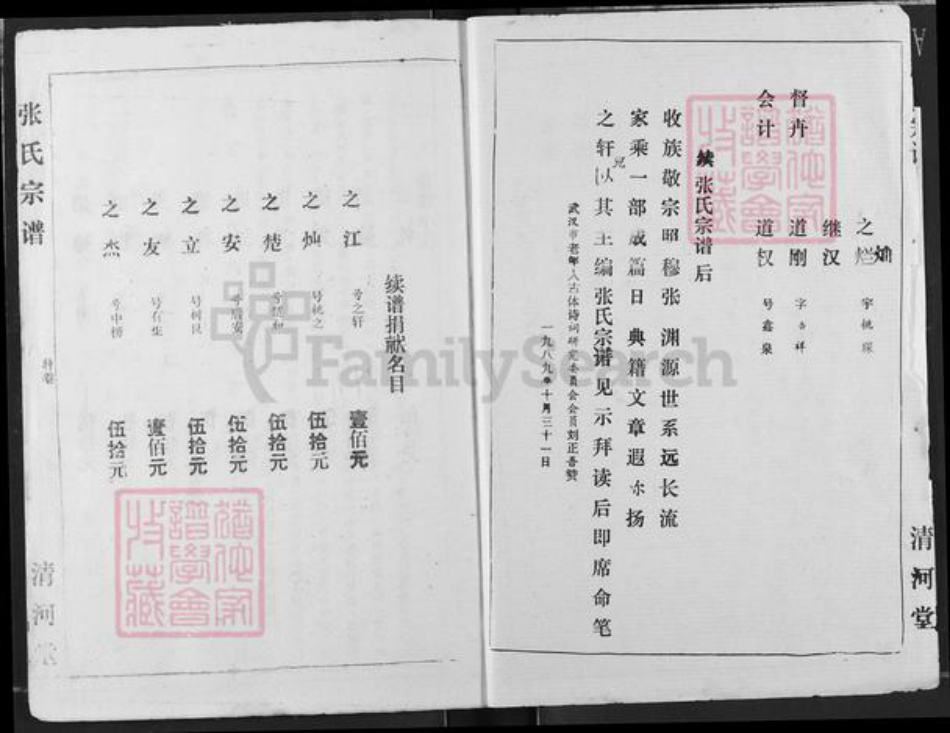 之灿 字桃琛
继汉
督卉 道刚 字吉祥
会计 道权 号鑫泉
续张氏宗谱后
收族敬宗昭穆张 渊源世系远长流
家乘一部成篇日 典籍文章遐尔扬
之轩兄以其主编张氏宗谱见示拜读后即席命笔
武汉市老年人古体诗词研究委员会会员刘正吾赞
一九八九年十月三十一日
清河堂
续谱捐献名目
之江 号之轩 壹佰元
之灿 号桃之 伍拾元
之楚 伍拾元
之安 号启安 伍拾元
之立 号树良 伍拾元
之友 号有柴 壹佰元
之杰 号中榜 伍拾元
张氏宗谱
特卷
清河堂
FamilySearch